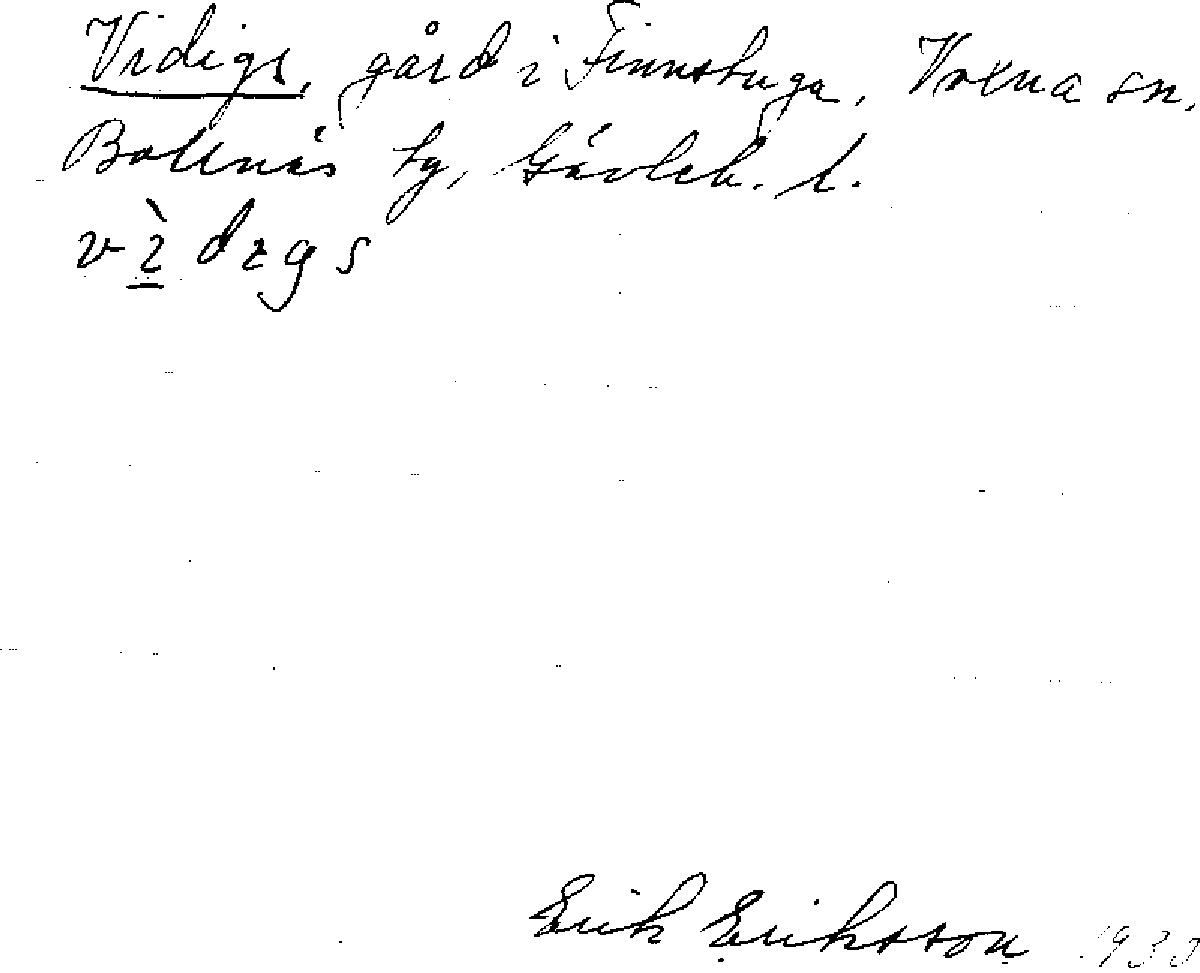 Vidigs, gård i Finnstuga, Voxna sn,
Bollnäs tg, Gävleb. l.
v ì d ɪ g s
Erik Eriksson 1930